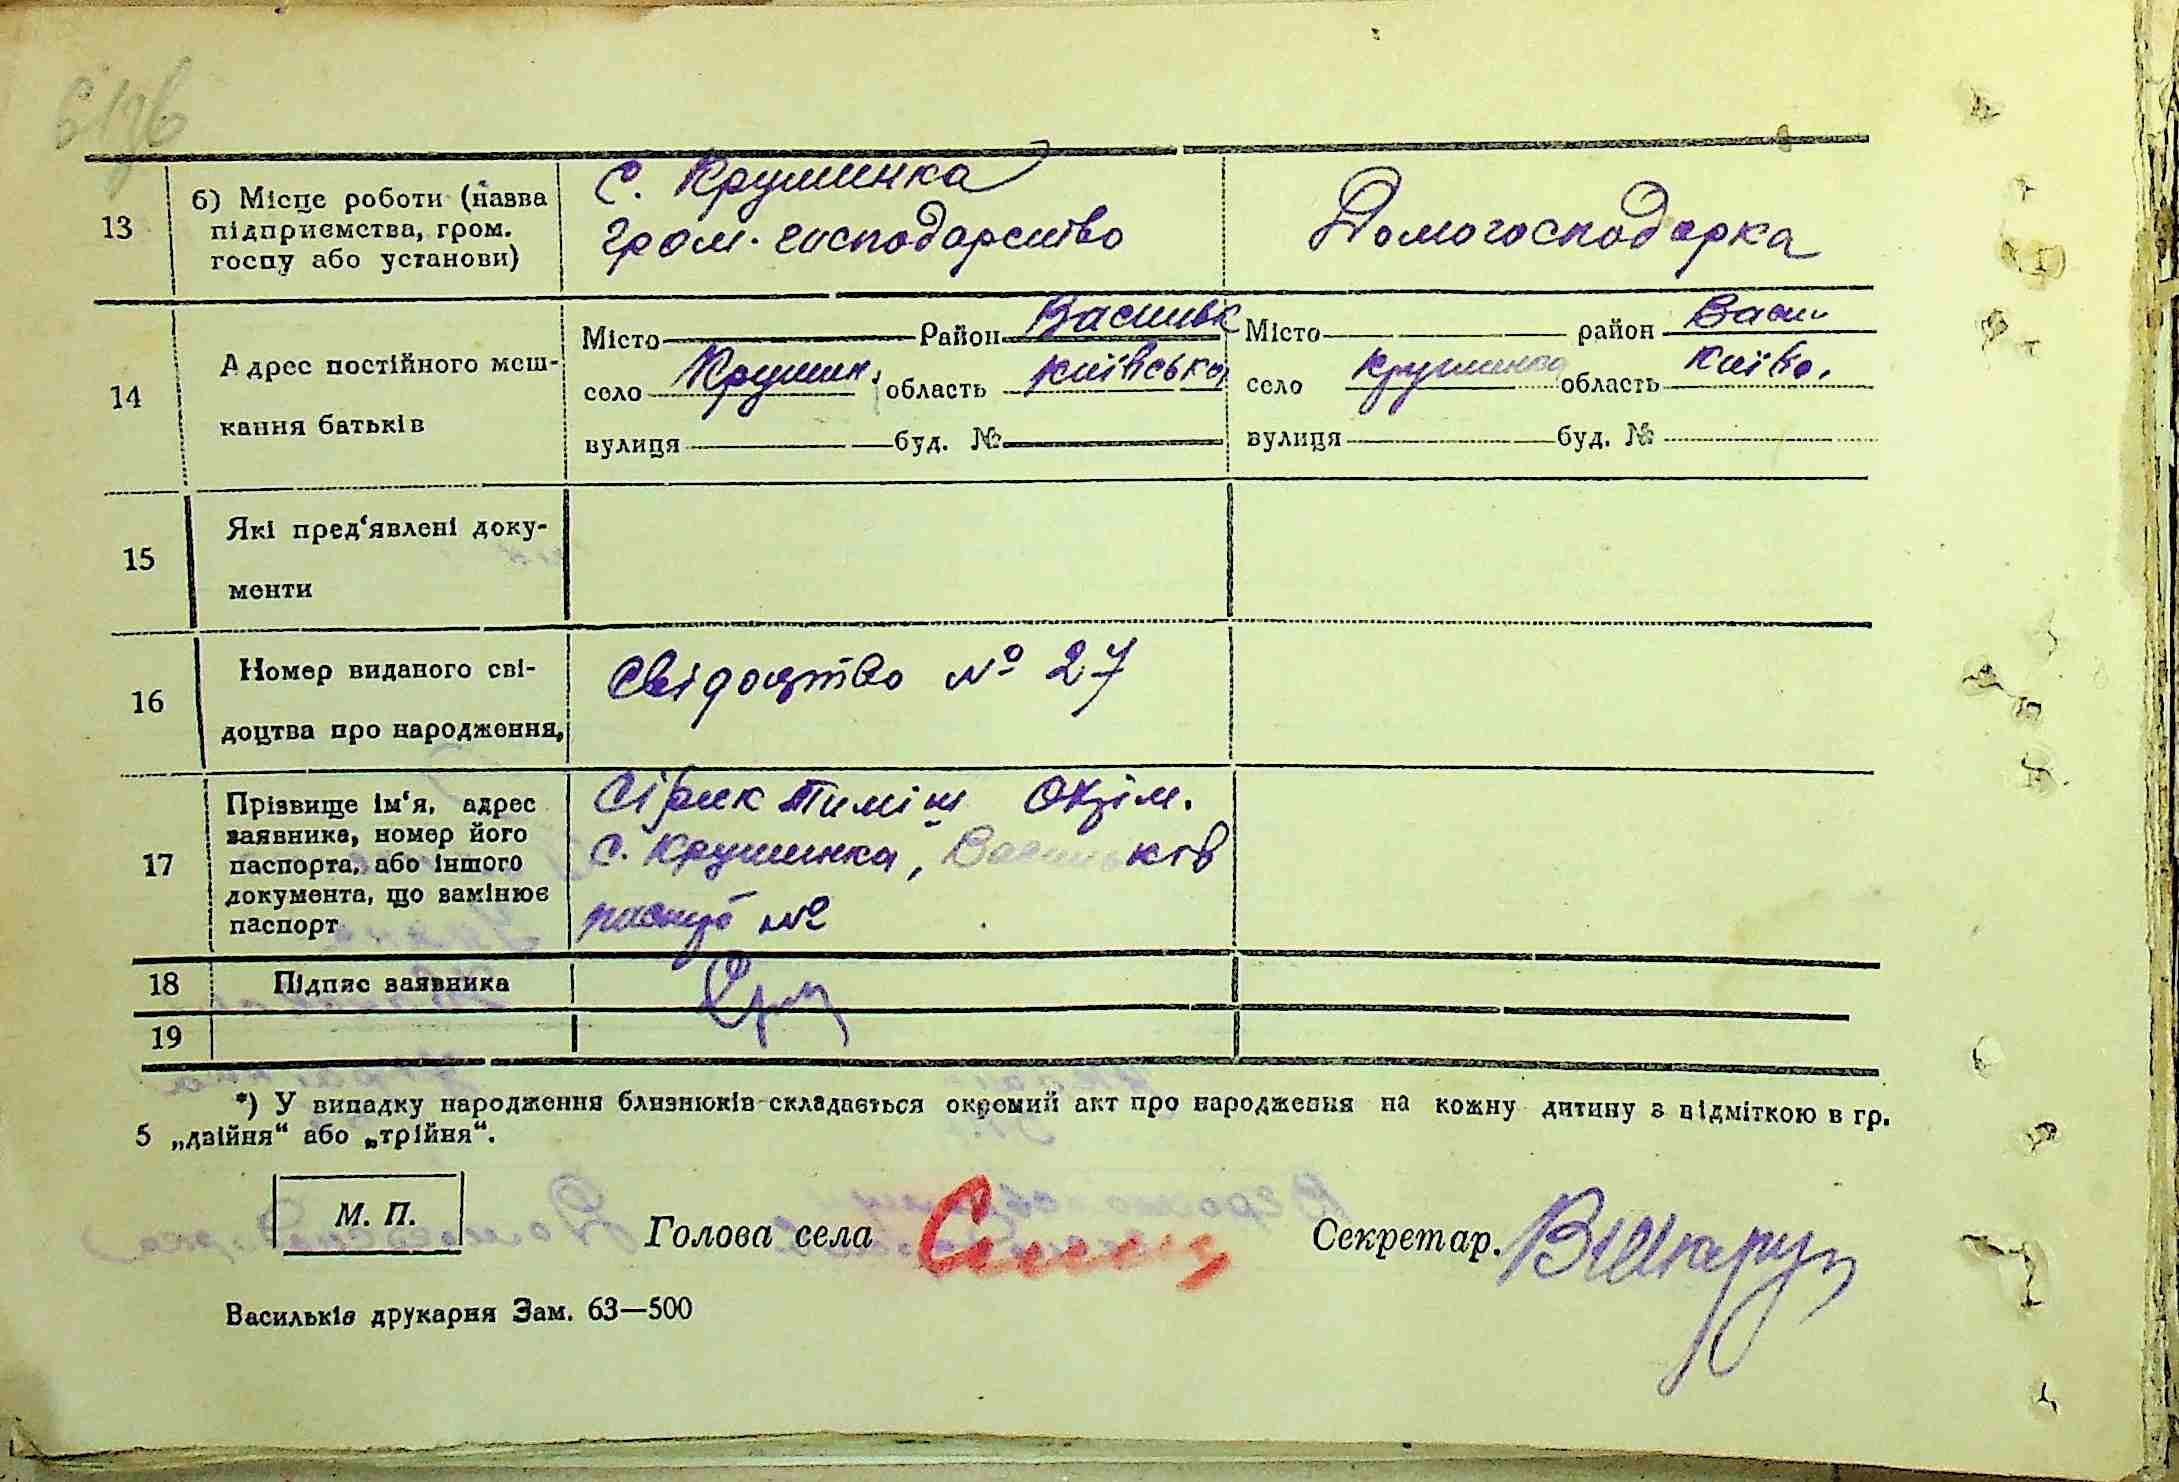 13 б) Місце роботи (назва підприємства, гром. госпу або установи)
с. Крушинка
гром. господарство
Домогосподарка
14 Адрес постійного меш-
кання батьків
Місто Район Васильк
село Крушин. область Київська
вулиця буд. №
Місто район Васи
село Крушинка область Київо.
вулиця буд. №
15 Які пред'явлені доку-
менти
16 Номер виданого сві-
доцтва про народження,
Свідоцтво № 27
17 Прізвище ім'я, адрес
заявника, номер його
паспорта, або іншого
документа, що замінює
паспорт
Сірик Тиміш
с. Крушинка, Васильків
№
18 Підпис заявника
19
*) У випадку народження близнюків складається окремий акт про народження на кожну дитину з відміткою в гр.
5 „двійня“ або „трійня“.
М. П.
Голова села
Секретар.
Васильків друкарня Зам. 63—500